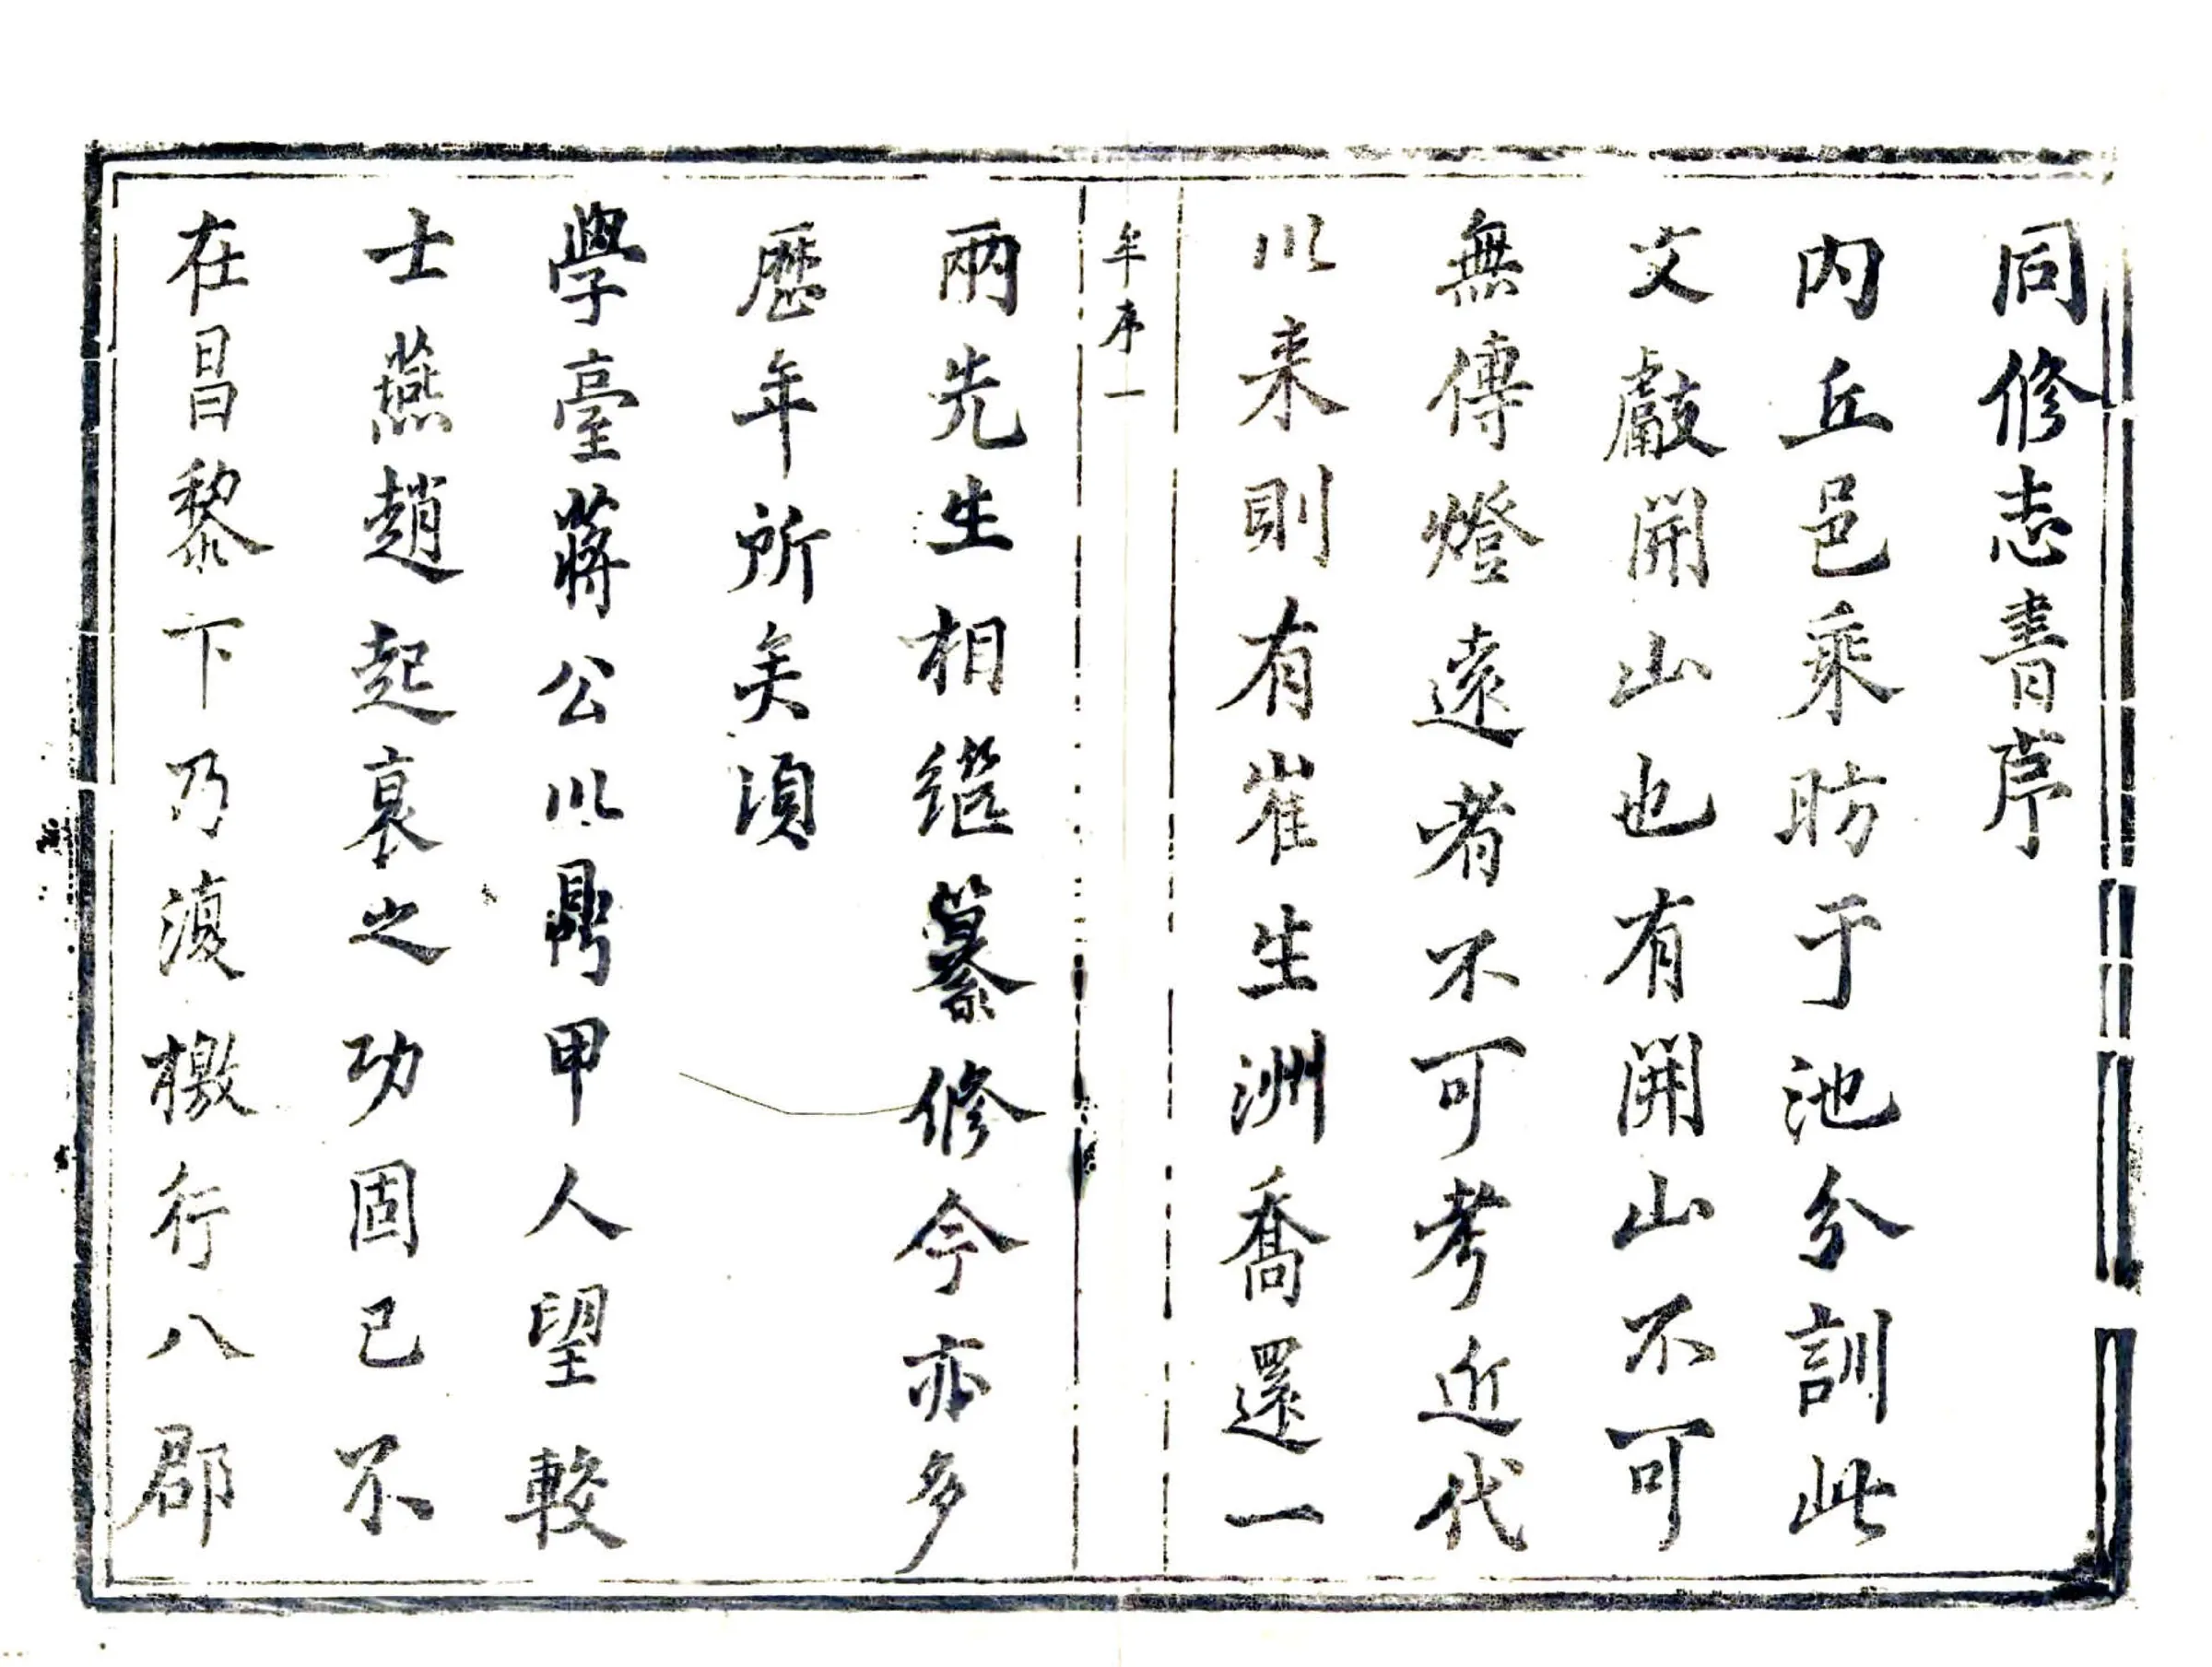 同修志書序
内丘邑乘昉于池分訓此
文獻開山也有開山不可
無傳燈遠者不可考近代
以来則有崔生洲喬還一
牟序一
兩先生相繼纂修今亦多
歷年所矣須
學臺蔣公以鼎甲人望較
士燕趙起衰之功固已不
在昌黎下乃復檄行八郡